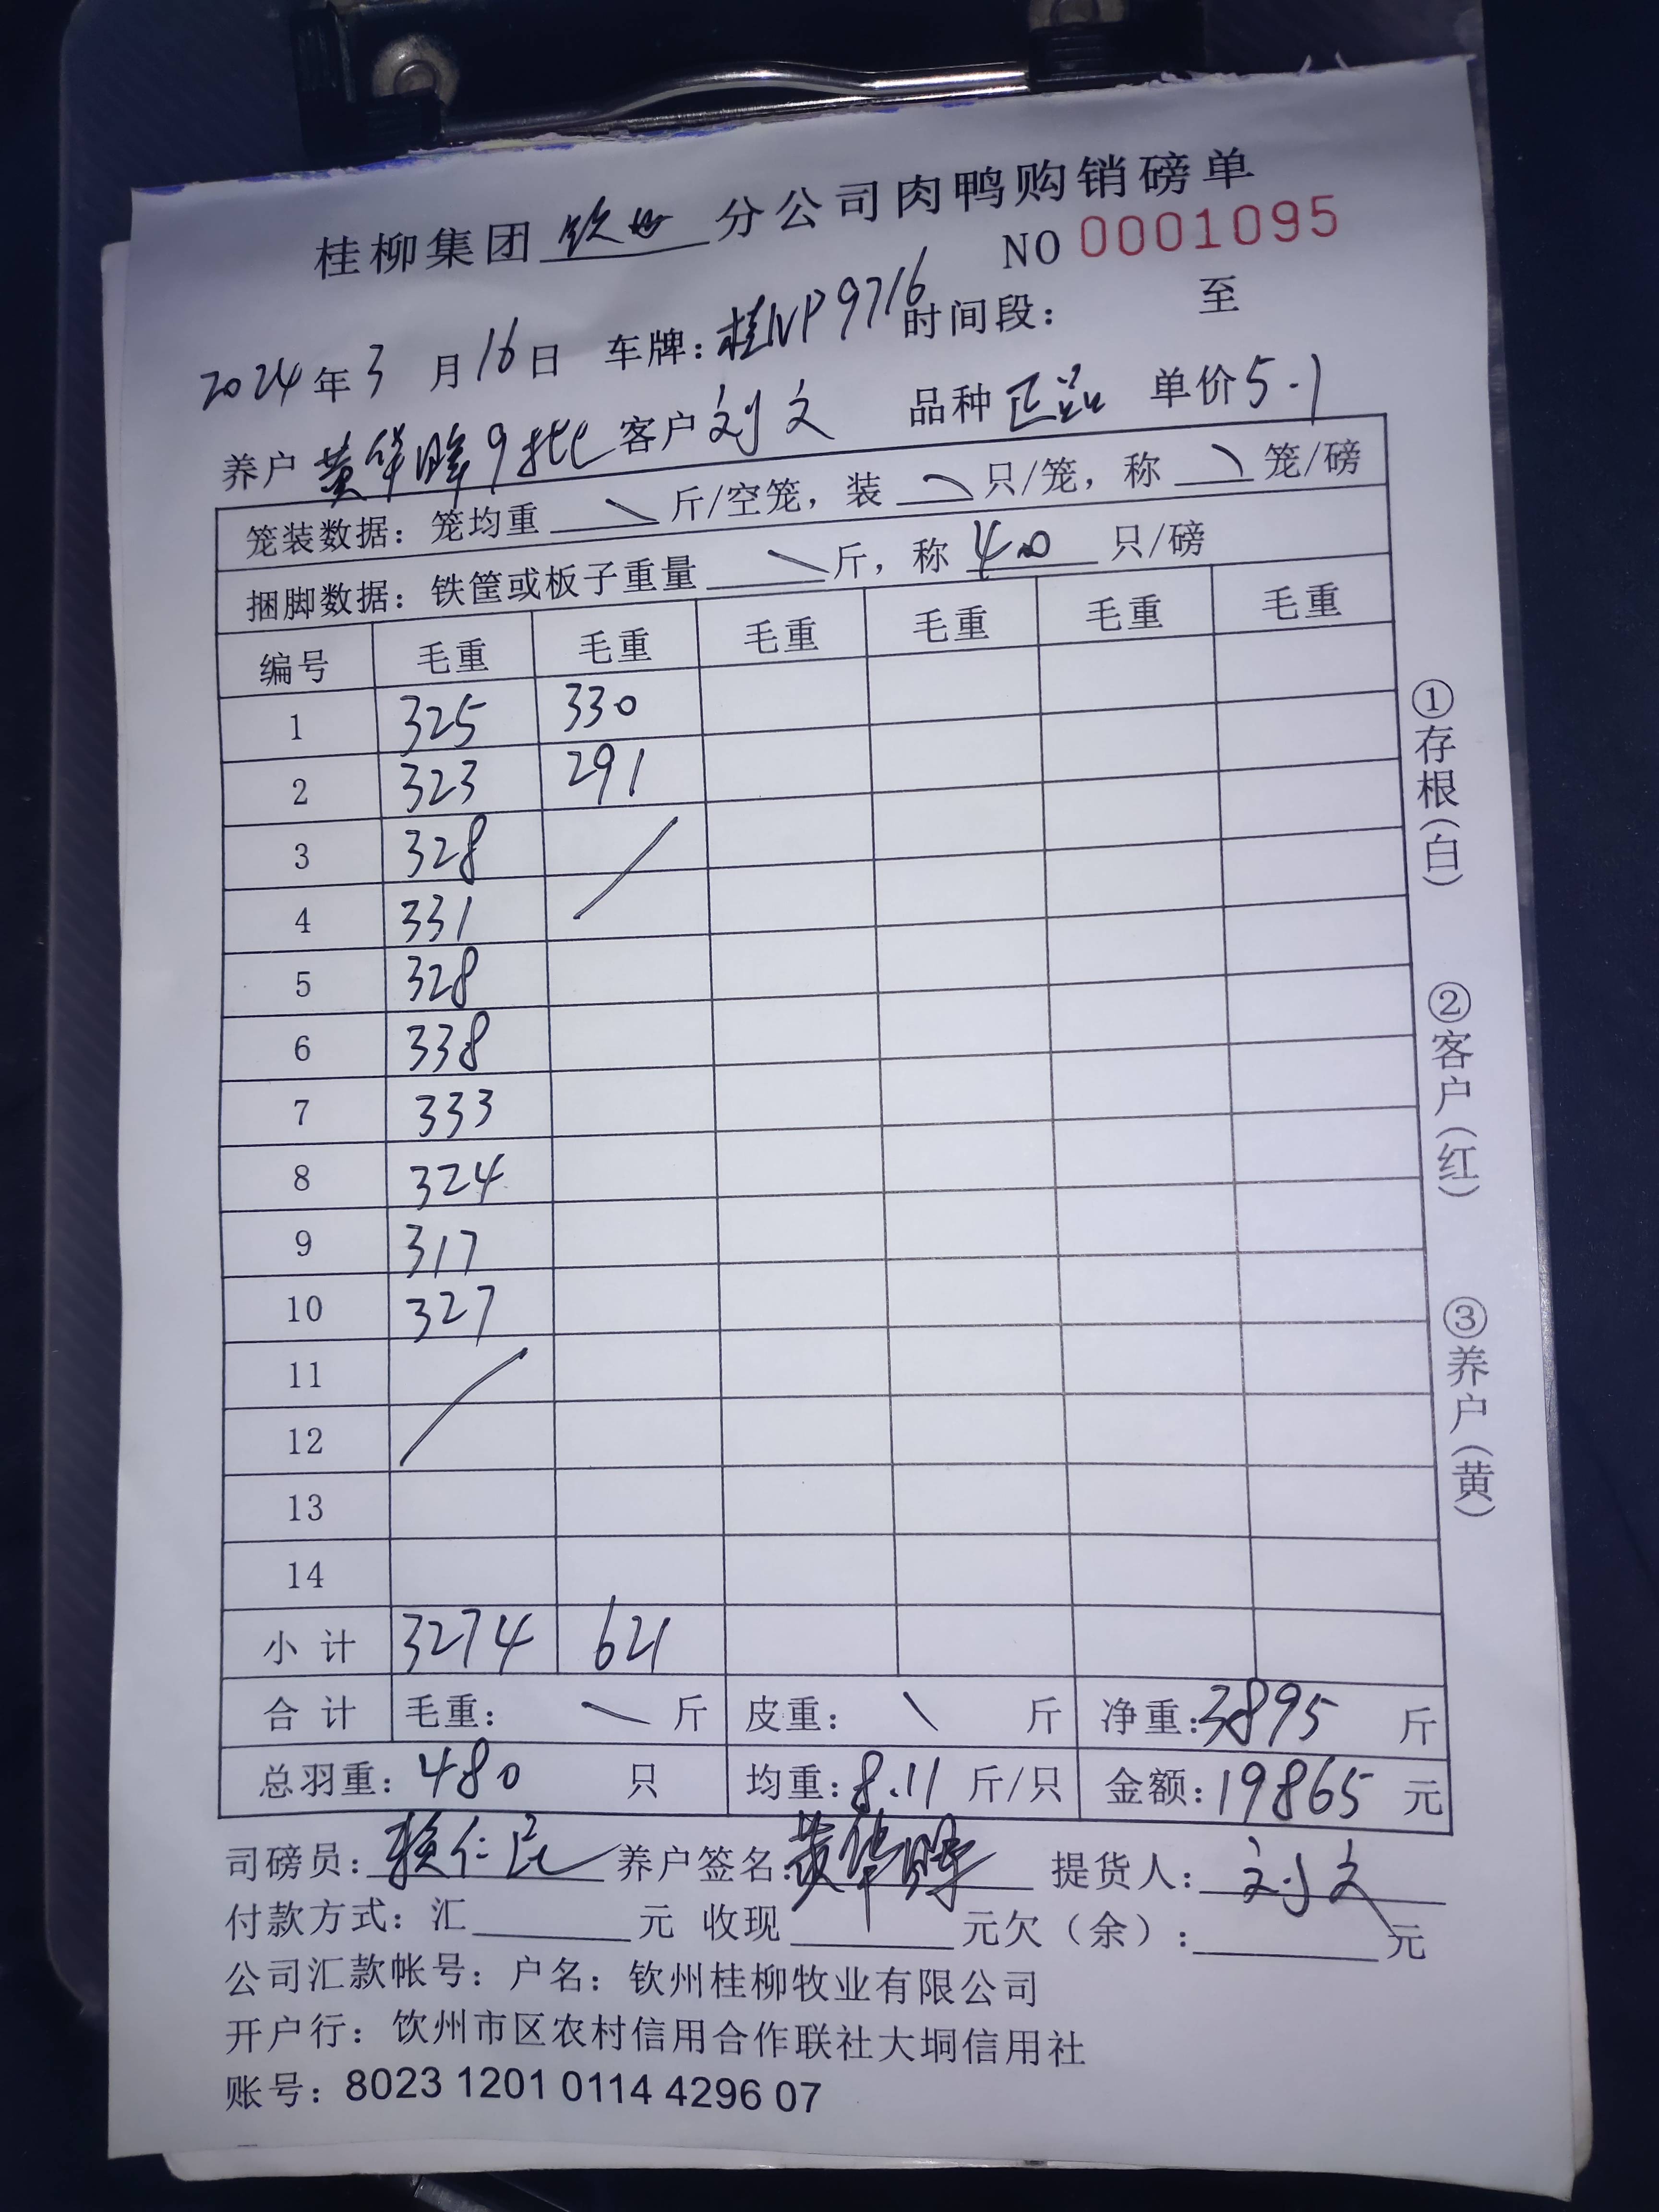 桂柳集团 钦州 分公司肉鸭购销磅单
NO 0001095
2024年3月16日 车牌：桂NP9716 时间段： 至
养户 黄华晖9批 客户 刘文 品种 正品 单价5.1
笼装数据：笼均重 \ 斤/空笼，装 \ 只/笼，称 \ 笼/磅
捆脚数据：铁筐或板子重量 \ 斤，称 40 只/磅
编号 毛重 毛重 毛重 毛重 毛重 毛重
1 325 330
2 323 291
3 328 /
4 331
5 328
6 338
7 333
8 324
9 317
10 327
11 /
12
13
14
小计 3274 621
合计 毛重： \ 斤 皮重： \ 斤 净重：3895 斤
总羽重：480 只 均重：8.11 斤/只 金额：19865 元
司磅员：赖仁民 养户签名：黄华晖 提货人：刘文
付款方式：汇 元 收现 元欠（余）： 元
公司汇款帐号：户名：钦州桂柳牧业有限公司
开户行：饮州市区农村信用合作联社大垌信用社
账号：8023 1201 0114 4296 07
①存根（白）
②客户（红）
③养户（黄）